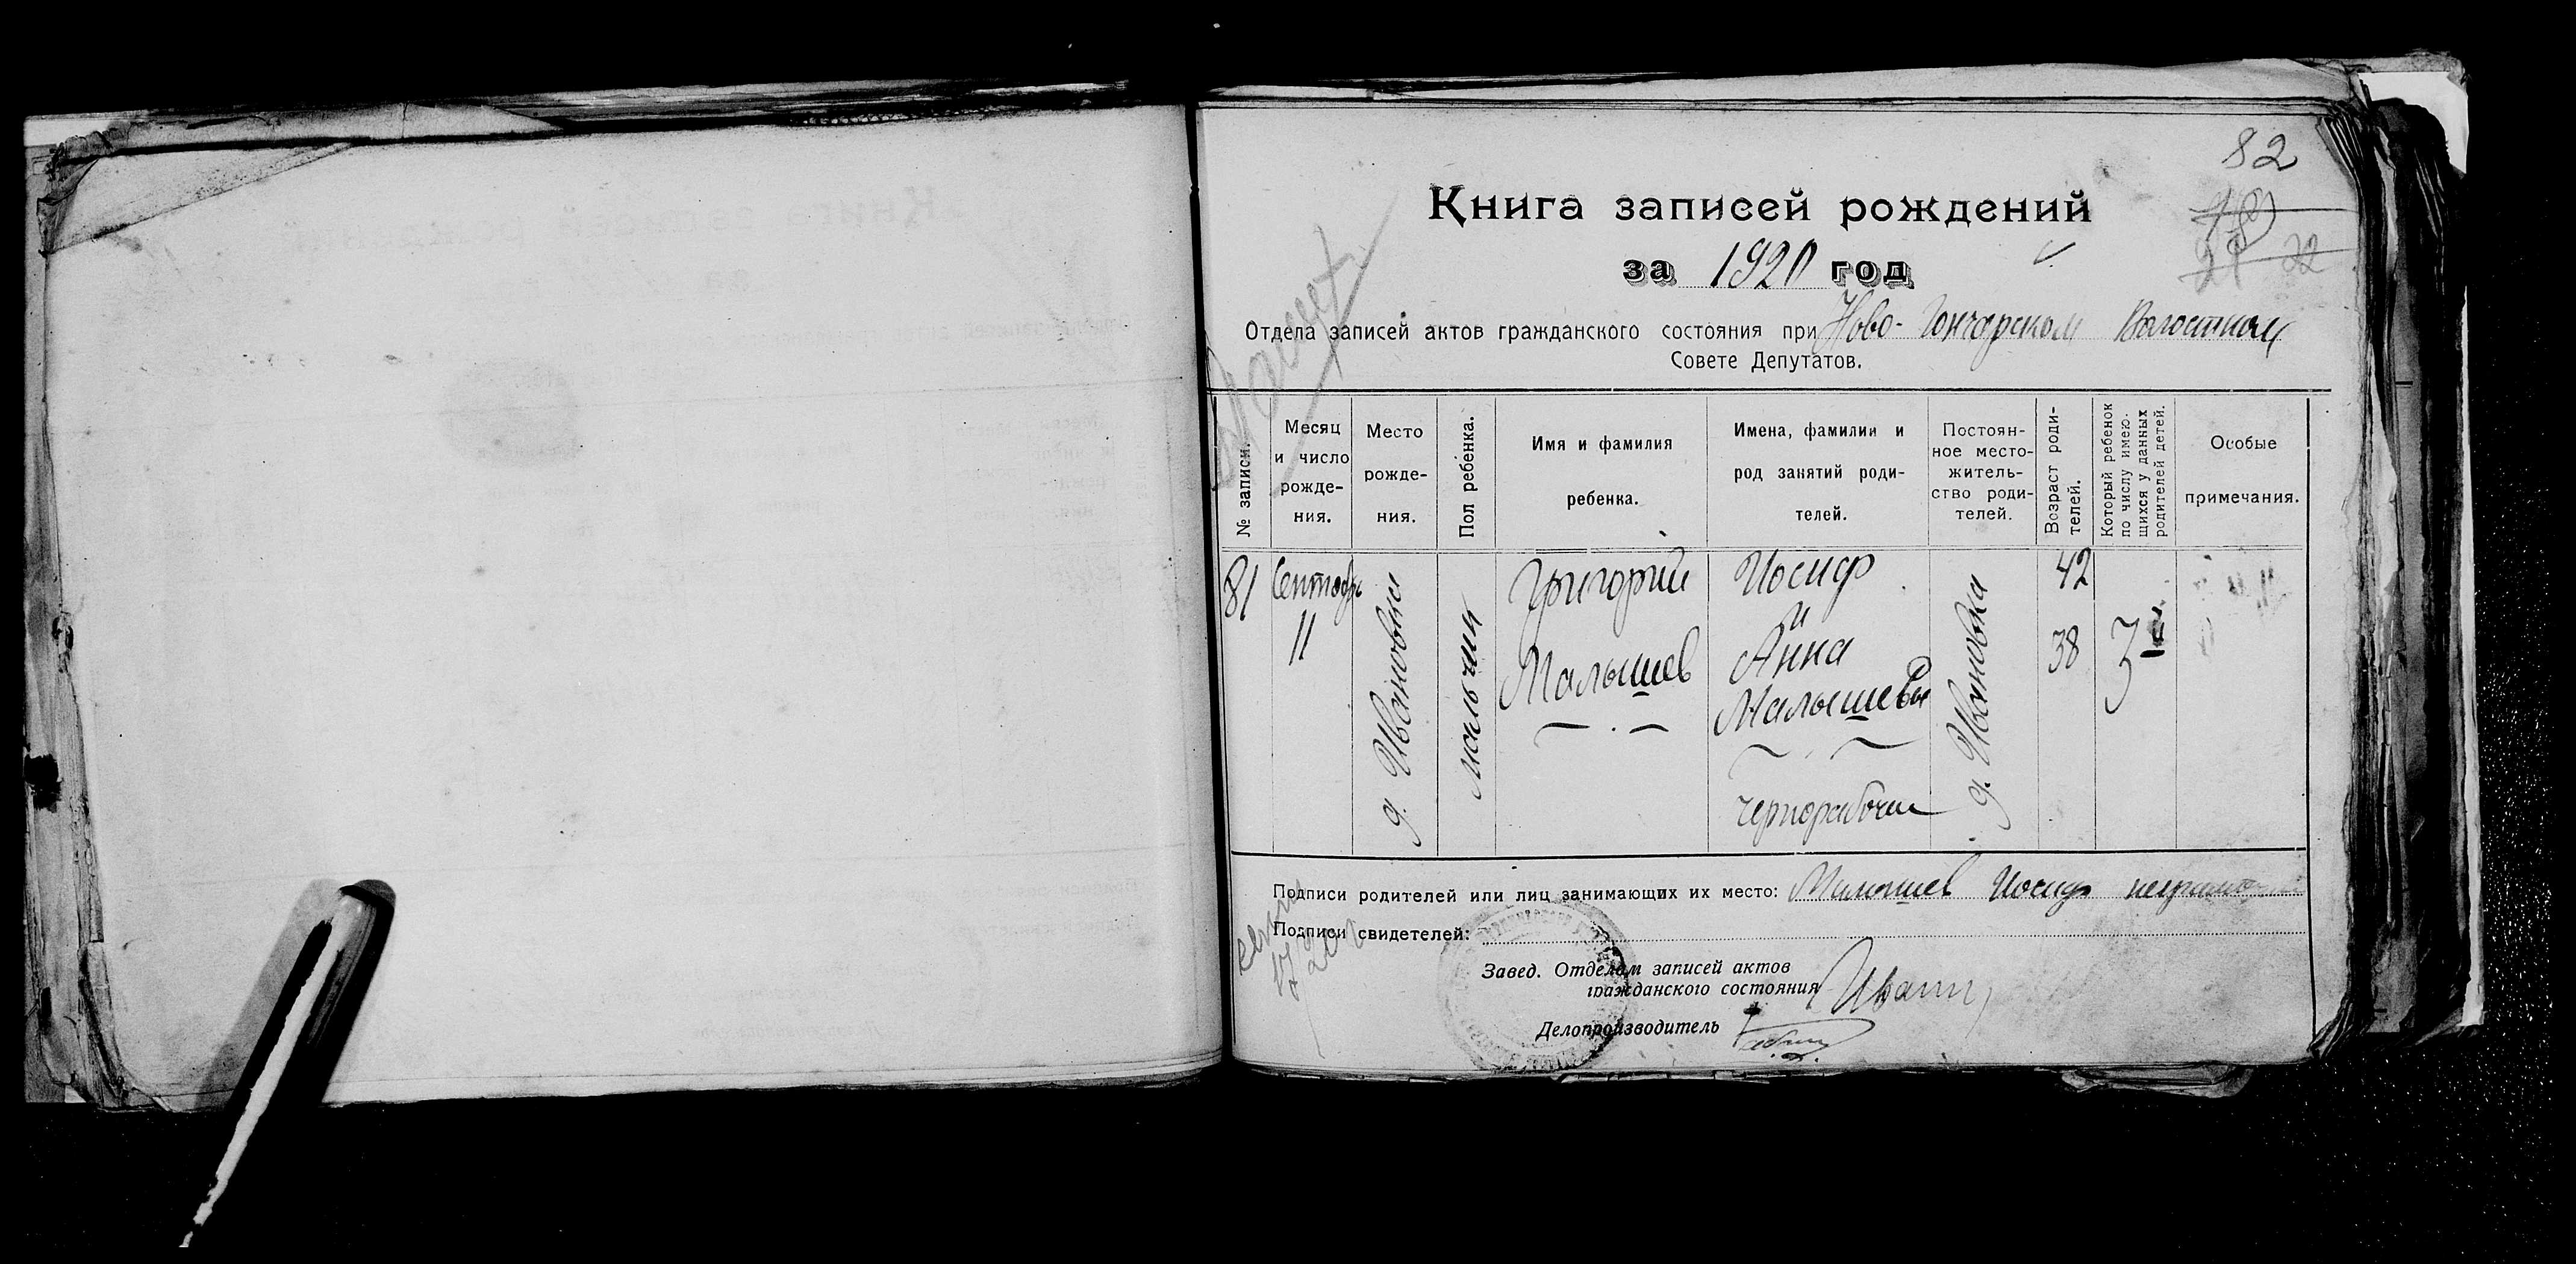 82
Книга записей рождений
за 1920 год
22
Отдела записей актов гражданского состояния при Ново-Гончарском Волостном
Совете Депутатов.
№ записи.
Месяц
и число
рожде-
ния.
Место
рожде-
ния.
Пол ребенка.
Имя и фамилия
ребенка.
Имена, фамилии и
род занятий роди-
телей.
Постоян-
ное место-
житель-
ство роди-
телей.
Возраст роди-
телей.
Который ребенок
по числу имею-
щихся у данных
родителей детей.
Особые
примечания.
81
Сентябрь
11
д. Ивановка
мальчик
Григорий
Малышев
Иосиф
и
Анна
Малышевы
чернорабочие
д. Ивановка
42
38
3й
Подписи родителей или лиц занимающих их место: Малышев Иосиф неграмотный
Подписи свидетелей:
Завед. Отделам записей актов
гражданского состояния
Делопроизводитель